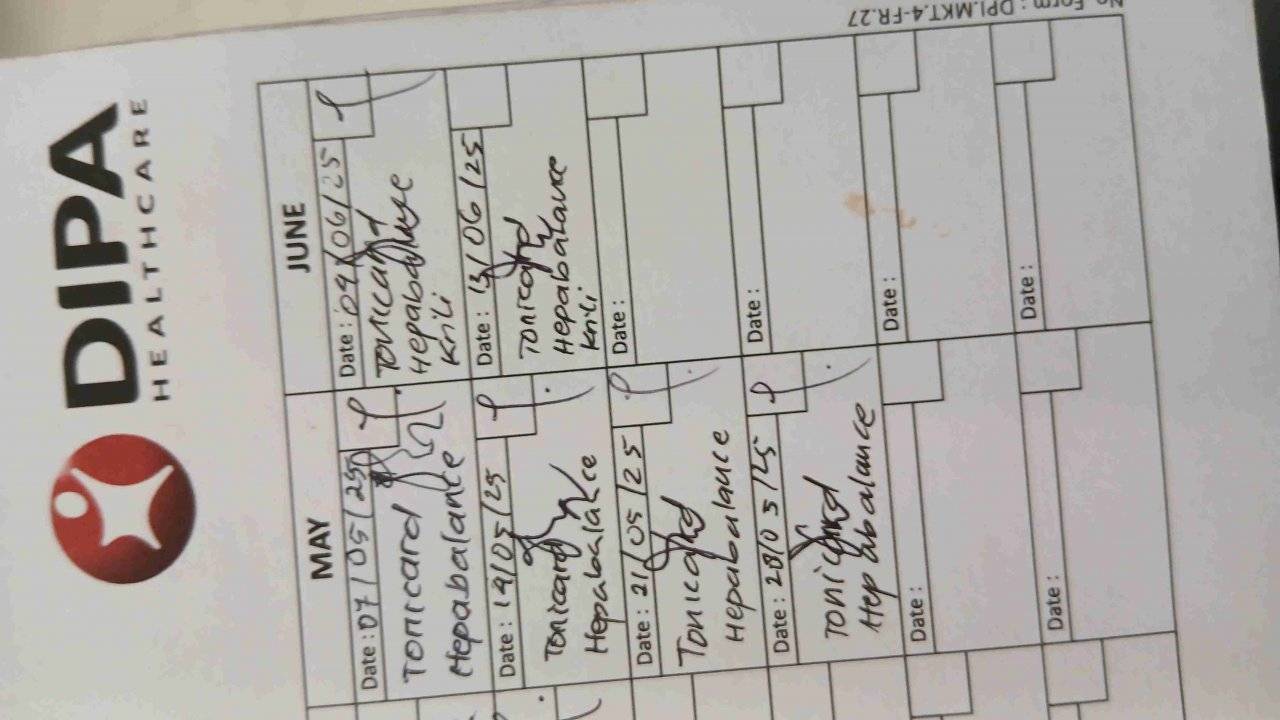 DIPA
HEALTHCARE
MAY
Date : 07/05/25
Tonicard
Hepabalance
Date : 19/05/25
Tonicard
Hepabalance
Date : 21/05/25
Tonicard
Hepabalance
Date : 28/05/25
Tonicard
Hepabalance
Date :
Date :
JUNE
Date : 04/06/25
Tonicard
Hepabalance
Krili
Date : 13/06/25
Tonicard
Hepabalance
Krili
Date :
Date :
Date :
Date :
No Form : DPI.MKT.4-FR.27